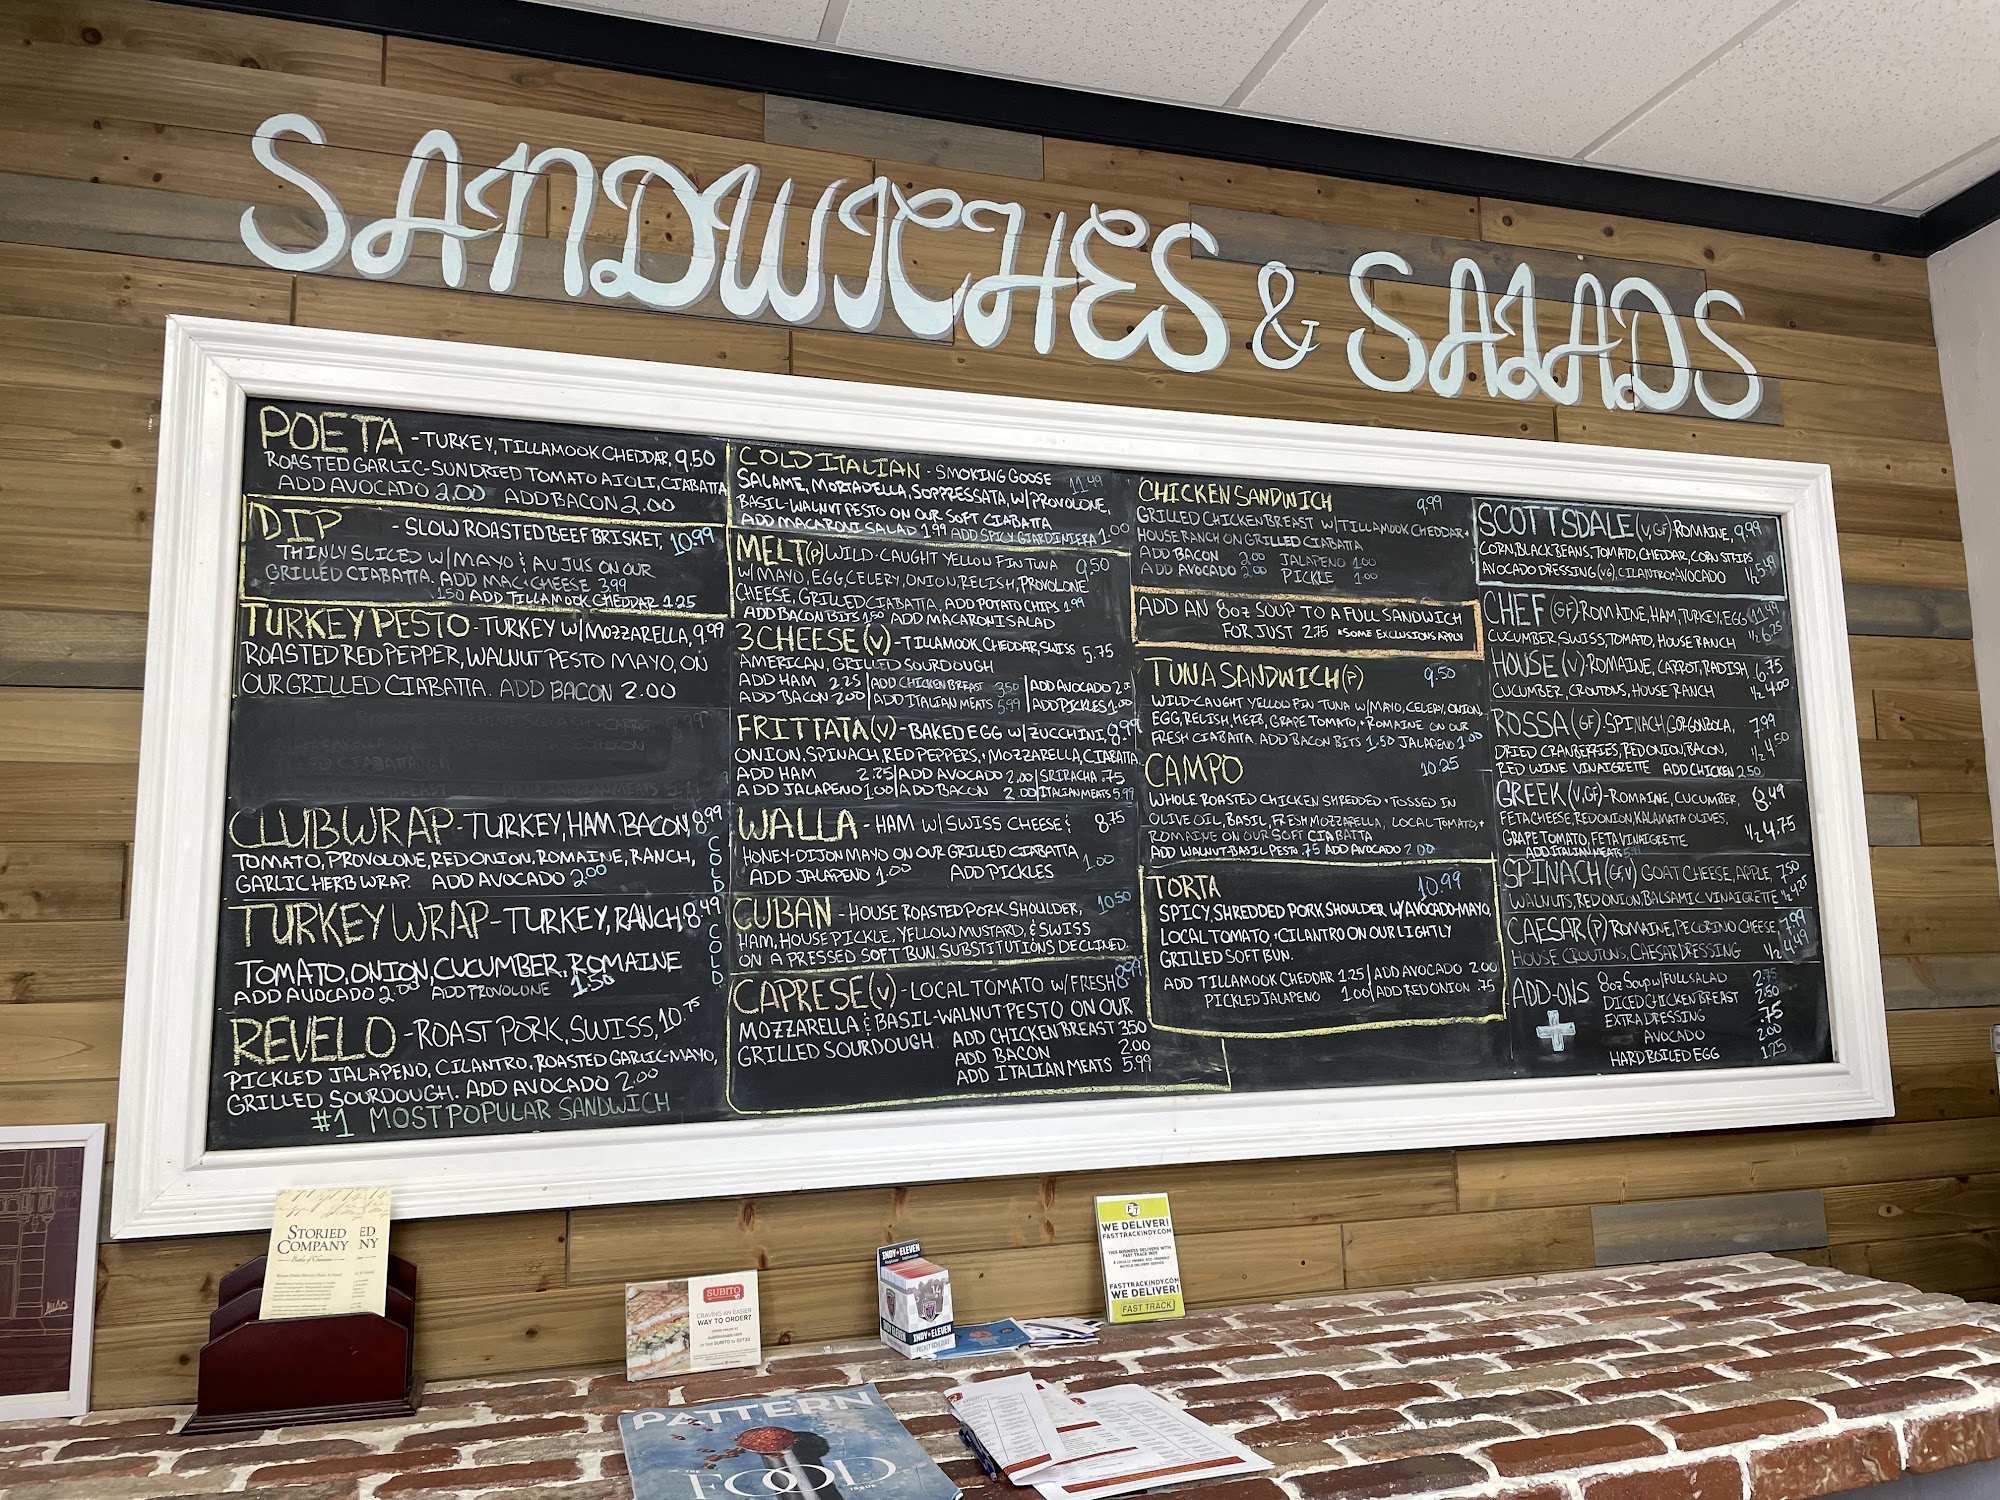 SANDWICHES & SALADS
POETA - TURKEY, TILLAMOOK CHEDDAR, 9.50
ROASTED GARLIC-SUNDRIED TOMATO AIOLI, CIABATTA
ADD AVOCADO 2.00 ADD BACON 2.00
DIP - SLOW ROASTED BEEF BRISKET, 10.99
THINLY SLICED W/ MAYO & AU JUS ON OUR
GRILLED CIABATTA. ADD MAC+CHEESE 3.99
1.50 ADD TILLAMOOK CHEDDAR 1.25
TURKEY PESTO - TURKEY W/ MOZZARELLA, 9.99
ROASTED RED PEPPER, WALNUT PESTO MAYO, ON
OUR GRILLED CIABATTA. ADD BACON 2.00
CLUB WRAP - TURKEY, HAM, BACON, 8.99
TOMATO, PROVOLONE, RED ONION, ROMAINE, RANCH,
GARLIC HERB WRAP. ADD AVOCADO 2.00
COLD
TURKEY WRAP - TURKEY, RANCH, 8.49
TOMATO, ONION, CUCUMBER, ROMAINE
ADD AVOCADO 2.00 ADD PROVOLONE 1.50
COLD
REVELO - ROAST PORK, SWISS, 10.75
PICKLED JALAPENO, CILANTRO, ROASTED GARLIC-MAYO,
GRILLED SOURDOUGH. ADD AVOCADO 2.00
#1 MOST POPULAR SANDWICH
COLD ITALIAN - SMOKING GOOSE 11.49
SALAME, MORTADELLA, SOPPRESSATA, W/ PROVOLONE,
BASIL-WALNUT PESTO ON OUR SOFT CIABATTA
ADD MACARONI SALAD 1.99 ADD SPICY GIARDINIERA 1.00
MELT (P) WILD-CAUGHT YELLOW FIN TUNA 9.50
W/ MAYO, EGG, CELERY, ONION, RELISH, PROVOLONE
CHEESE, GRILLED CIABATTA. ADD POTATO CHIPS 1.99
ADD BACON BITS 1.50 ADD MACARONI SALAD
3 CHEESE (V) - TILLAMOOK CHEDDAR, SWISS 5.75
AMERICAN, GRILLED SOURDOUGH
ADD HAM 2.25 | ADD CHICKEN BREAST 3.50 | ADD AVOCADO 2.00
ADD BACON 2.00 | ADD ITALIAN MEATS 5.99 | ADD PICKLES 1.00
FRITTATA (V) - BAKED EGG W/ ZUCCHINI, 8.99
ONION, SPINACH, RED PEPPERS, + MOZZARELLA, CIABATTA
ADD HAM 2.25 | ADD AVOCADO 2.00 | SRIRACHA .75
ADD JALAPENO 1.00 | ADD BACON 2.00 | ITALIAN MEATS 5.99
WALLA - HAM W/ SWISS CHEESE & 8.75
HONEY-DIJON MAYO ON OUR GRILLED CIABATTA
ADD JALAPENO 1.00 ADD PICKLES 1.00
CUBAN - HOUSE ROASTED PORK SHOULDER, 10.50
HAM, HOUSE PICKLE, YELLOW MUSTARD, & SWISS
ON A PRESSED SOFT BUN. SUBSTITUTIONS DECLINED
CAPRESE (V) - LOCAL TOMATO W/ FRESH 8.99
MOZZARELLA & BASIL-WALNUT PESTO ON OUR
GRILLED SOURDOUGH. ADD CHICKEN BREAST 3.50
ADD BACON 2.00
ADD ITALIAN MEATS 5.99
CHICKEN SANDWICH 9.99
GRILLED CHICKEN BREAST W/ TILLAMOOK CHEDDAR +
HOUSE RANCH ON GRILLED CIABATTA
ADD BACON 2.00 JALAPENO 1.00
ADD AVOCADO 2.00 PICKLE 1.00
ADD AN 8oz SOUP TO A FULL SANDWICH
FOR JUST 2.75 *SOME EXCLUSIONS APPLY
TUNA SANDWICH (P) 9.50
WILD-CAUGHT YELLOW FIN TUNA W/ MAYO, CELERY, ONION,
EGG, RELISH, HERB, GRAPE TOMATO, + ROMAINE ON OUR
FRESH CIABATTA. ADD BACON BITS 1.50 JALAPENO 1.00
CAMPO 10.25
WHOLE ROASTED CHICKEN SHREDDED + TOSSED IN
OLIVE OIL, BASIL, FRESH MOZZARELLA, LOCAL TOMATO, +
ROMAINE ON OUR SOFT CIABATTA
ADD WALNUT-BASIL PESTO .75 ADD AVOCADO 2.00
TORTA 10.99
SPICY, SHREDDED PORK SHOULDER W/ AVOCADO-MAYO,
LOCAL TOMATO, + CILANTRO ON OUR LIGHTLY
GRILLED SOFT BUN.
ADD TILLAMOOK CHEDDAR 1.25 | ADD AVOCADO 2.00
PICKLED JALAPENO 1.00 | ADD RED ONION .75
SCOTTSDALE (V, GF) ROMAINE, 9.99
CORN, BLACK BEANS, TOMATO, CHEDDAR, CORN STRIPS
AVOCADO DRESSING (VG), CILANTRO + AVOCADO 1/2 5.49
CHEF (GF) ROMAINE, HAM, TURKEY, EGG 11.49
CUCUMBER, SWISS, TOMATO, HOUSE RANCH 1/2 6.25
HOUSE (V) - ROMAINE, CARROT, RADISH 6.75
CUCUMBER, CROUTONS, HOUSE RANCH 1/2 4.00
ROSSA (GF) - SPINACH, GORGONZOLA, 7.99
DRIED CRANBERRIES, RED ONION, BACON, 1/2 4.50
RED WINE VINAIGRETTE ADD CHICKEN 2.50
GREEK (V, GF) - ROMAINE, CUCUMBER, 8.49
FETA CHEESE, RED ONION, KALAMATA OLIVES,
GRAPE TOMATO, FETA VINAIGRETTE 1/2 4.75
ADD ITALIAN MEATS 5.99
SPINACH (GF, V) GOAT CHEESE, APPLE, 7.50
WALNUTS, RED ONION, BALSAMIC VINAIGRETTE 1/2 4.25
CAESAR (P) ROMAINE, PECORINO CHEESE, 7.99
HOUSE CROUTONS, CAESAR DRESSING 1/2 4.49
ADD-ONS 8oz SOUP W/ FULL SALAD 2.75
DICED CHICKEN BREAST 2.50
EXTRA DRESSING .75
AVOCADO 2.00
HARD BOILED EGG 1.25
STORIED
COMPANY
SUBITO
CRAVING AN EASIER
WAY TO ORDER?
INDY ELEVEN
INDY ELEVEN
FT
WE DELIVER!
FASTTRACKINDY.COM
THIS BUSINESS DELIVERS WITH
FAST TRACK INDY
FASTTRACKINDY.COM
WE DELIVER!
FAST TRACK
PATTERN
THE
FOOD
ISSUE